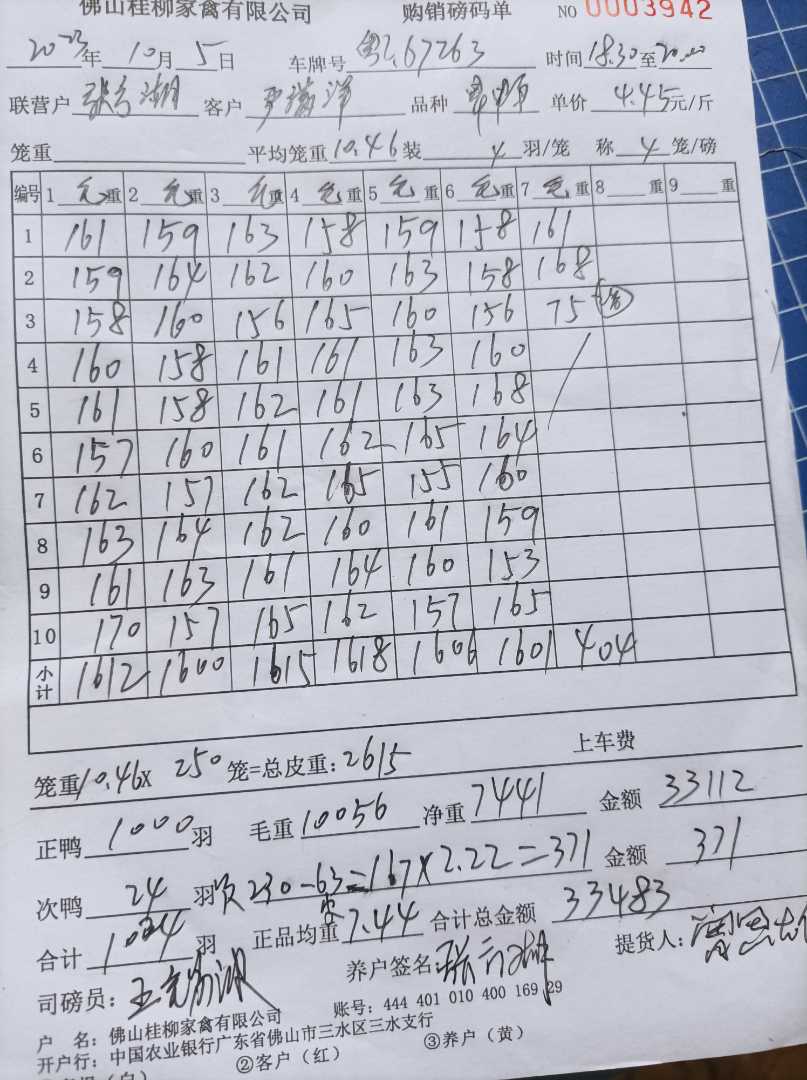 佛山桂柳家禽有限公司 购销磅码单 NO 0003942
2023年 10月 5日 车牌号 67263 时间 18.30 至 20.00
联营户 客户 品种 单价 4.45 元/斤
笼重 平均笼重 10.46 装 4 羽/笼 称 4 笼/磅
编号 1 毛重 2 毛重 3 毛重 4 毛重 5 毛重 6 毛重 7 毛重 8 重 9 重
1 161 159 163 158 159 158 161
2 159 164 162 160 163 158 168
3 158 160 156 165 160 156 75
4 160 158 161 161 163 160
5 161 158 162 161 163 168
6 157 160 161 162 165 164
7 162 157 162 165 155 160
8 163 164 162 160 161 159
9 161 163 161 164 160 153
10 170 157 165 162 157 165
小计 1612 1600 1615 1618 1606 1601 404
上车费
笼重 10.46× 250 笼=总皮重:2615
正鸭 1000 羽 毛重 10056 净重 7441 金额 33112
次鸭 24 羽 次 230-63=167×2.22=371 金额 371
合计 1024 羽 正品均重 7.44 合计总金额 33483
司磅员: 养户签名: 提货人:
户 名:佛山桂柳家禽有限公司 账号:444 401 010 400 169 29
开户行:中国农业银行广东省佛山市三水区三水支行
②客户(红) ③养户(黄)